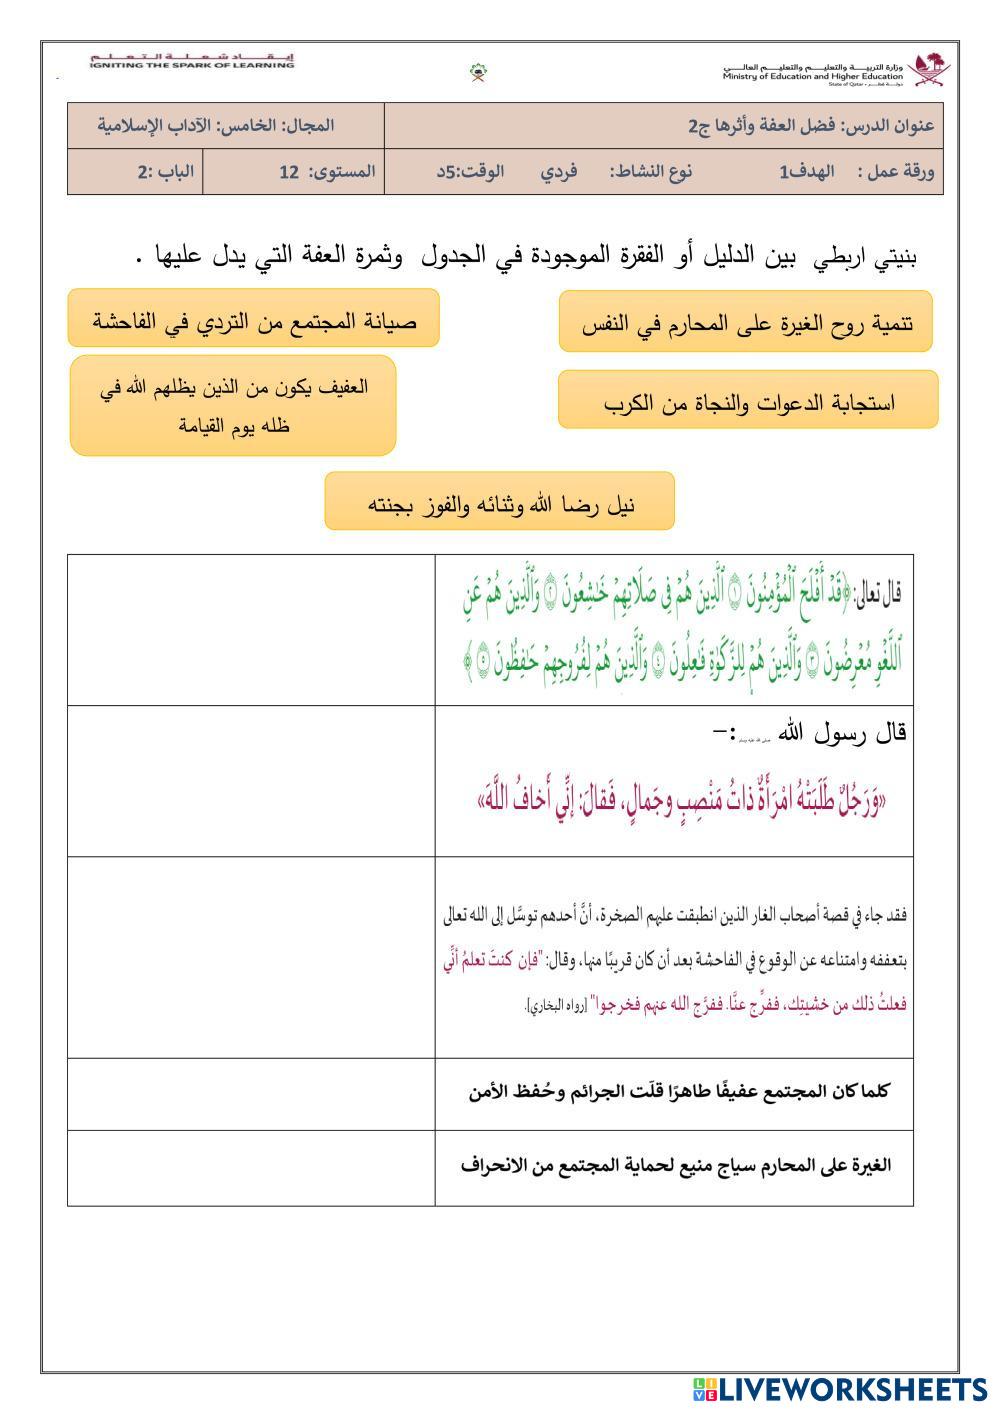 إيقـــاد شـعـلـة الـتـعـلـم
IGNITING THE SPARK OF LEARNING
وزارة التربيـــة والتعليـم والتعليـم العالـي
Ministry of Education and Higher Education
State of Qatar • دولـة قـطـر
عنوان الدرس: فضل العفة وأثرها ج2
المجال: الخامس: الآداب الإسلامية
ورقة عمل : الهدف1 نوع النشاط: فردي الوقت:5د
المستوى: 12
الباب :2
بنيتي اربطي بين الدليل أو الفقرة الموجودة في الجدول وثمرة العفة التي يدل عليها .
تنمية روح الغيرة على المحارم في النفس
صيانة المجتمع من التردي في الفاحشة
استجابة الدعوات والنجاة من الكرب
العفيف يكون من الذين يظلهم الله في
ظله يوم القيامة
نيل رضا الله وثنائه والفوز بجنته
قال تعالى: ﴿قَدۡ أَفۡلَحَ ٱلۡمُؤۡمِنُونَ ١ ٱلَّذِينَ هُمۡ فِي صَلَاتِهِمۡ خَٰشِعُونَ ٢ وَٱلَّذِينَ هُمۡ عَنِ
ٱللَّغۡوِ مُعۡرِضُونَ ٣ وَٱلَّذِينَ هُمۡ لِلزَّكَوٰةِ فَٰعِلُونَ ٤ وَٱلَّذِينَ هُمۡ لِفُرُوجِهِمۡ حَٰفِظُونَ ٥﴾
قال رسول الله صلى الله عليه وسلم :-
«وَرَجُلٌ طَلَبَتْهُ امْرَأَةٌ ذاتُ مَنْصِبٍ وجَمالٍ، فَقالَ: إنِّي أَخافُ اللَّهَ»
فقد جاء في قصة أصحاب الغار الذين انطبقت عليهم الصخرة، أنَّ أحدهم توسَّل إلى الله تعالى
بتعففه وامتناعه عن الوقوع في الفاحشة بعد أن كان قريبًا منها، وقال: "فإن كنتَ تعلمُ أنِّي
فعلتُ ذلك من خشيتِك، ففرِّج عنَّا. ففرَّج الله عنهم فخرجوا" [رواه البخاري].
كلما كان المجتمع عفيفًا طاهرًا قلَت الجرائم وحُفظ الأمن
الغيرة على المحارم سياج منيع لحماية المجتمع من الانحراف
LIVE LIVEWORKSHEETS